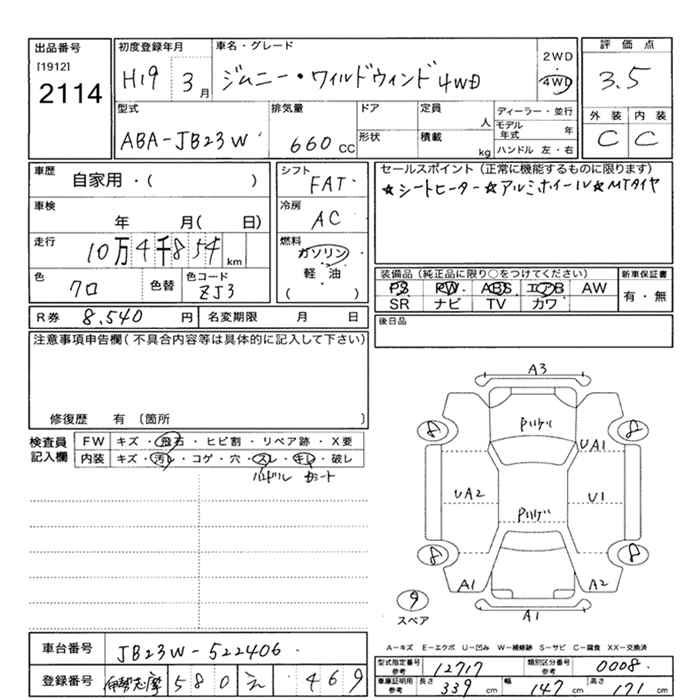 出品番号 初度登録年月 車名・グレード 評価点
[1912] 2WD
2114 H19 3月 ジムニー・ワイルドウィンド4WD 4WD 3.5
型式 排気量 ドア 定員 人 ディーラー・並行 外装 内装
ABA-JB23W 660cc 形状 積載 kg モデル年式 年 C C
ハンドル 左・右
車歴 自家用・( ) シフト FAT セールスポイント(正常に機能するものに限ります)
☆シートヒーター☆アルミホイール☆MTタイヤ
車検 年 月( 日) 冷房 AC
走行 10万4千854km 燃料 ガソリン
軽・油
( )
色 クロ 色替 色コード ZJ3 装備品(純正品に限り○をつけてください) 新車保証書
PS PW ABS エアB AW 有・無
SR ナビ TV カワ
R券 8,540円 名変期限 月 日 後日品
注意事項申告欄(不具合内容等は具体的に記入して下さい)
修復歴 有〔箇所 〕
検査員記入欄 FW キズ・飛石・ヒビ割・リペア跡・X要
内装 キズ・汚レ・コゲ・穴・スレ・キレ・破レ
ハンドル シート
A3
8 8
UA1
UA2 U1
8 8
A1 A2
9 A1
スペア
A-キズ E-エクボ U-凹み W-補修跡 S-サビ C-腐食 XX-交換済
車台番号 JB23W-522406
型式指定番号 参考 12717 類別区分番号 参考 0008
登録番号 伊勢志摩 580 え 469
車庫証明用 参考 長さ 339cm 幅 147cm 高さ 171cm